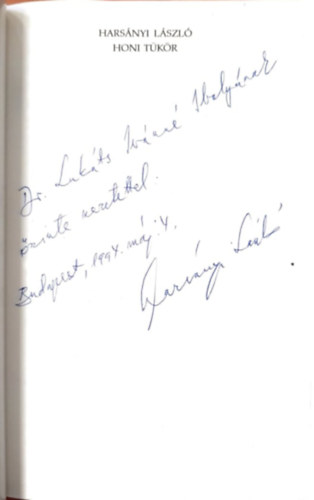 HARSÁNYI LÁSZLÓ
HONI TÜKÖR
Dr. Lukáts Ivánné Ibolyának
őszinte szeretettel.
Budapest, 1994. máj. 4.
Harsányi László